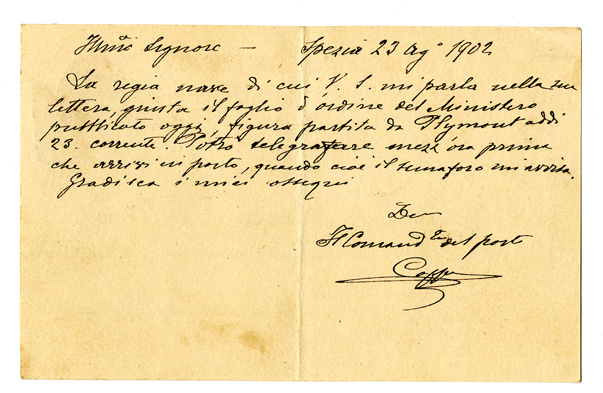 Illmo Signore — Spezia 23 Ago 1902
La regia nave di cui V. S. mi parla nella sua
lettera giusta il foglio d'ordine del Ministero
pubblicato oggi, figura partita da Plymout addi
23. corrente. Potrò telegrafare mezz'ora prima
che arrivi in porto, quando cioè il semaforo mi avvisa.
Gradisca i miei ossequi
Il Comandte del port